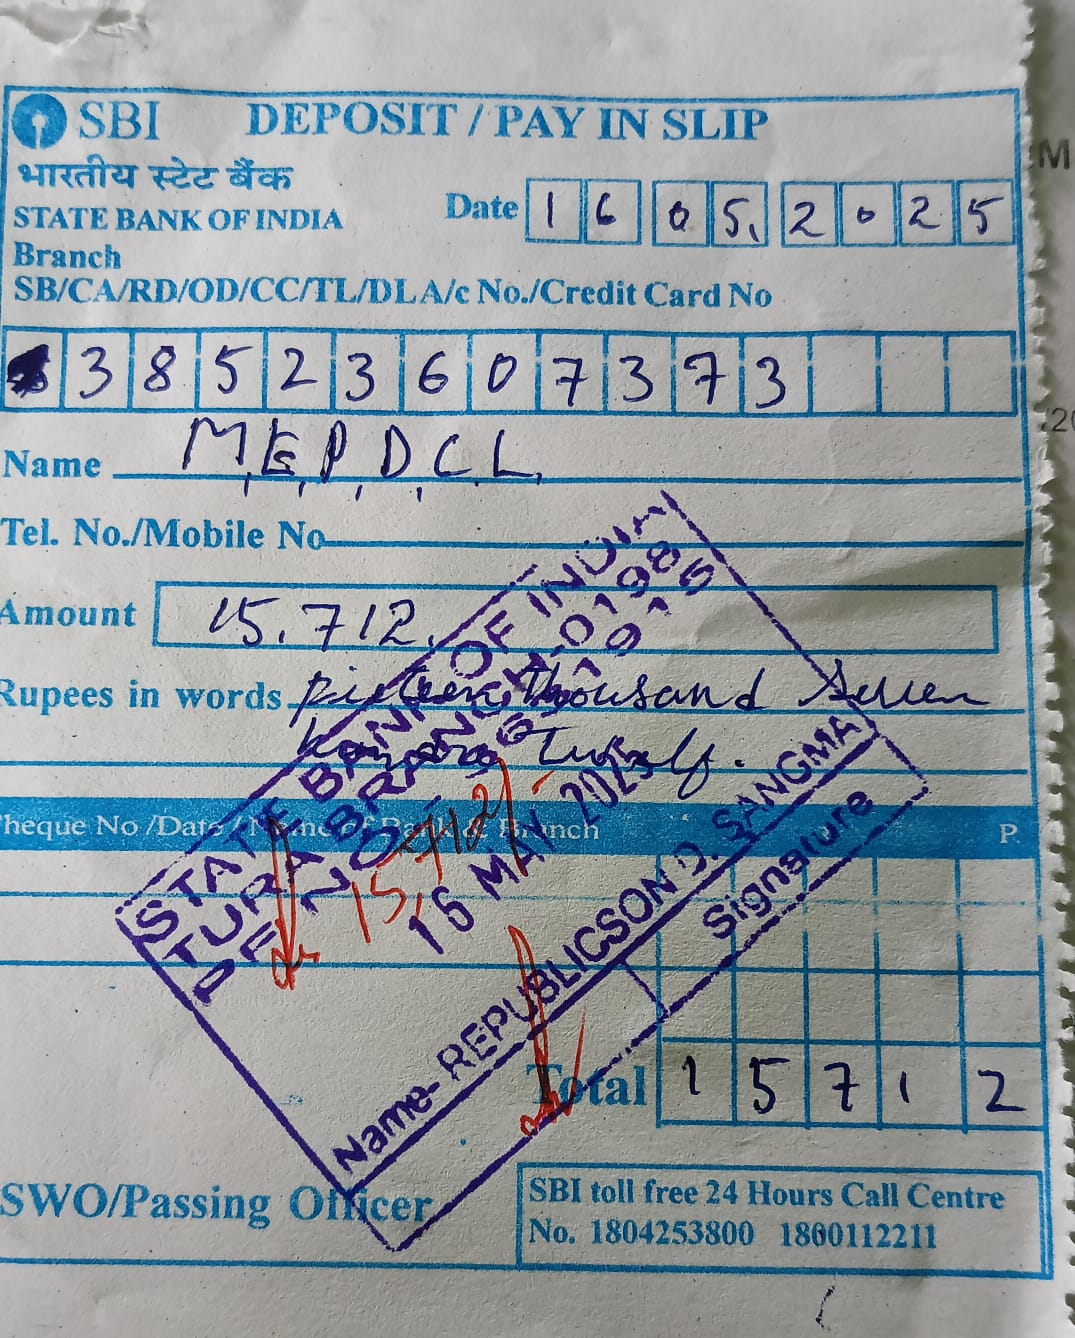 SBI DEPOSIT / PAY IN SLIP
भारतीय स्टेट बैंक
STATE BANK OF INDIA
Date 16 05. 2025
Branch
SB/CA/RD/OD/CC/TL/DLA/c No./Credit Card No
38523607373
Name M.E.P.D.C.L.
Tel. No./Mobile No
Amount 15,712.
Rupees in words fifteen thousand Seven
Twelf.
Cheque No /Date / Name of Bank & Branch P.
15,712/-
STATE BANK OF INDIA
TURA BRANCH-0198
16 MAY 2025
Name- REPUBLICSON D. SANGMA
Signature
Total 15712
SWO/Passing Officer
SBI toll free 24 Hours Call Centre
No. 1804253800 1800112211